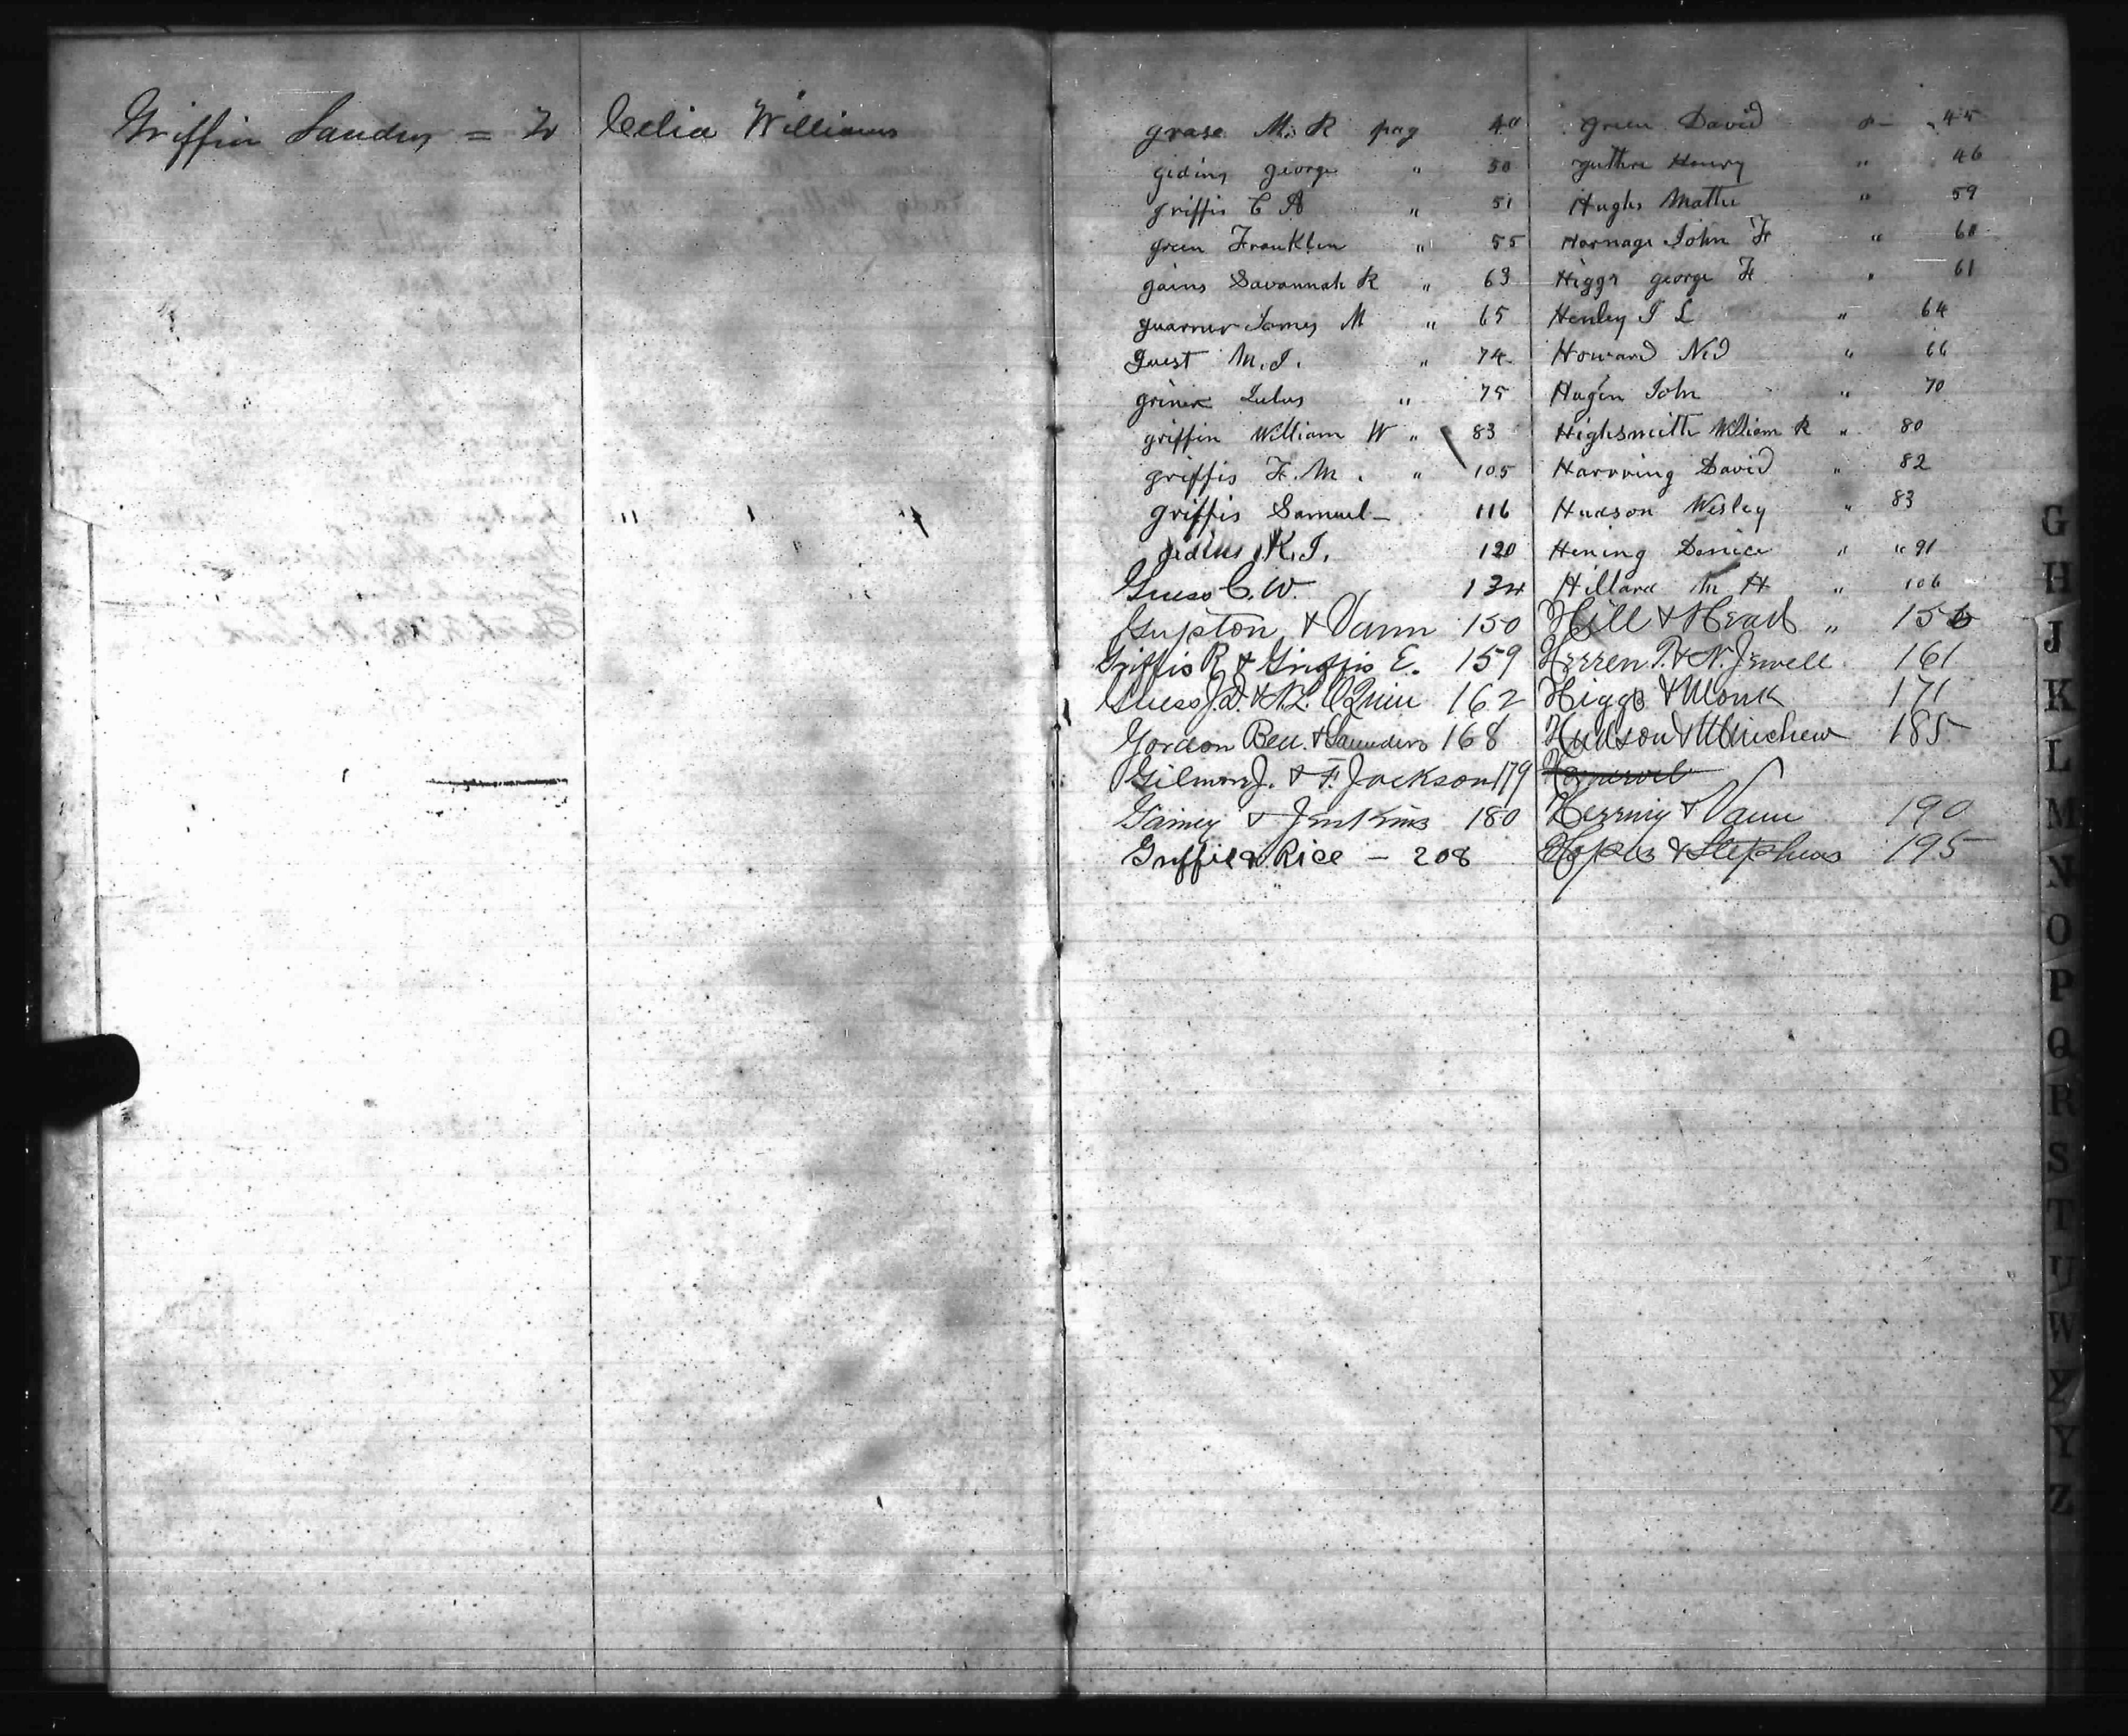 Griffin Sanders = to Celia Williams
grase M. R pag 40
giding george " 50
griffis C A " 51
green Franklin " 55
gains Savannah R " 63
guarner James M " 65
Guest M. J. " 74
griner Lulus " 75
griffin William W " 83
griffis F. M. " 105
griffis Samuel 116
gidins K. J. 120
Guess C. W. 134
Gupton & Vann 150
Griffis R. & Griffis E. 159
Guess J. D. & N. L. O'Quin 162
Gordon Bell & Saunders 168
Gilmore J. & F. Jackson 179
Gainey & Jenkins 180
Griffil & Rice - 208
green David 45
guthre Henry " 46
Hughs Mattie " 59
Harnage John F " 60
Higgs george F " 61
Henley J L " 64
Howard Ned " 66
Hagin John " 70
Highsmith William R " 80
Harvring David " 82
Hudson Wesley " 83
Hening Denice " " 91
Hillard M H " 106
Hill & Head " 156
Herren P. & N. Jewell 161
Higgs & Monk 171
Hudson & Minchew 185
Herring & Vann 190
& Stephens 195
G
H
J
K
L
M
N
O
P
Q
R
S
T
U
W
Y
Z